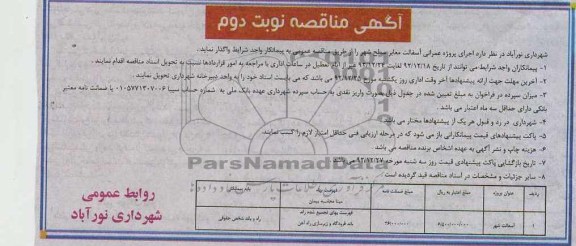 آگهی مناقصه نوبت دوم
شهرداری نورآباد در نظر دارد اجرای پروژه عمرانی آسفالت معابر سطح شهر را از طریق مناقصه عمومی به پیمانکار واجد شرایط واگذار نماید.
۱ - پیمانکاران واجد شرایط می توانند از تاریخ ۹۳/۱۲/۱۸ لغایت ۹۳/۱۲/۲۳ بجز ایام تعطیل در ساعات اداری با مراجعه به امور قراردادها نسبت به تحویل اسناد مناقصه اقدام نمایند.
۲ - آخرین مهلت جهت ارائه پیشنهادها آخر وقت اداری روز یکشنبه مورخ ۹۳/۱۲/۲۵ می باشد که می بایست اسناد خود را به واحد دبیرخانه شهرداری تحویل نمایند.
۳ - میزان سپرده در فراخوان به مبلغ تعیین شده در جدول ذیل بصورت واریز نقدی به حساب سپرده شهرداری عهده بانک ملی به شماره حساب سیبا ۰۱۰۵۷۷۱۳۰۷۰۰۶ یا ضمانت نامه معتبر
بانکی دارای حداقل سه ماه اعتبار می باشد.
۴ - شهرداری در رد و قبول هر یک از پیشنهادها مختار می باشد.
۵ - پاکت پیشنهادهای قیمت پیمانکارانی باز می شود که در مرحله ارزیابی فنی حداقل امتیاز لازم را کسب نمایند.
۶ - هزینه چاپ و نشر آگهی به عهده اشخاص برنده مناقصه می باشد.
۷ - تاریخ بازگشایی پاکت پیشنهادی قیمت روز سه شنبه مورخه ۹۳/۱۲/۲۷ می باشد
۸ - سایر جزئیات و مشخصات در اسناد مناقصه قید گردیده است.
ParsNamadData
ردیف عنوان پروژه مبلغ اعتبار به ریال مبلغ ضمانت نامه فهرست بهاء مبنا محاسبه پیمان
۱ آسفالت شهر فهرست بهای تجمیع شده راه، باند فرودگاه و زیرسازی راه آهن راه و باند شخص حقوقی
روابط عمومی
شهرداری نورآباد